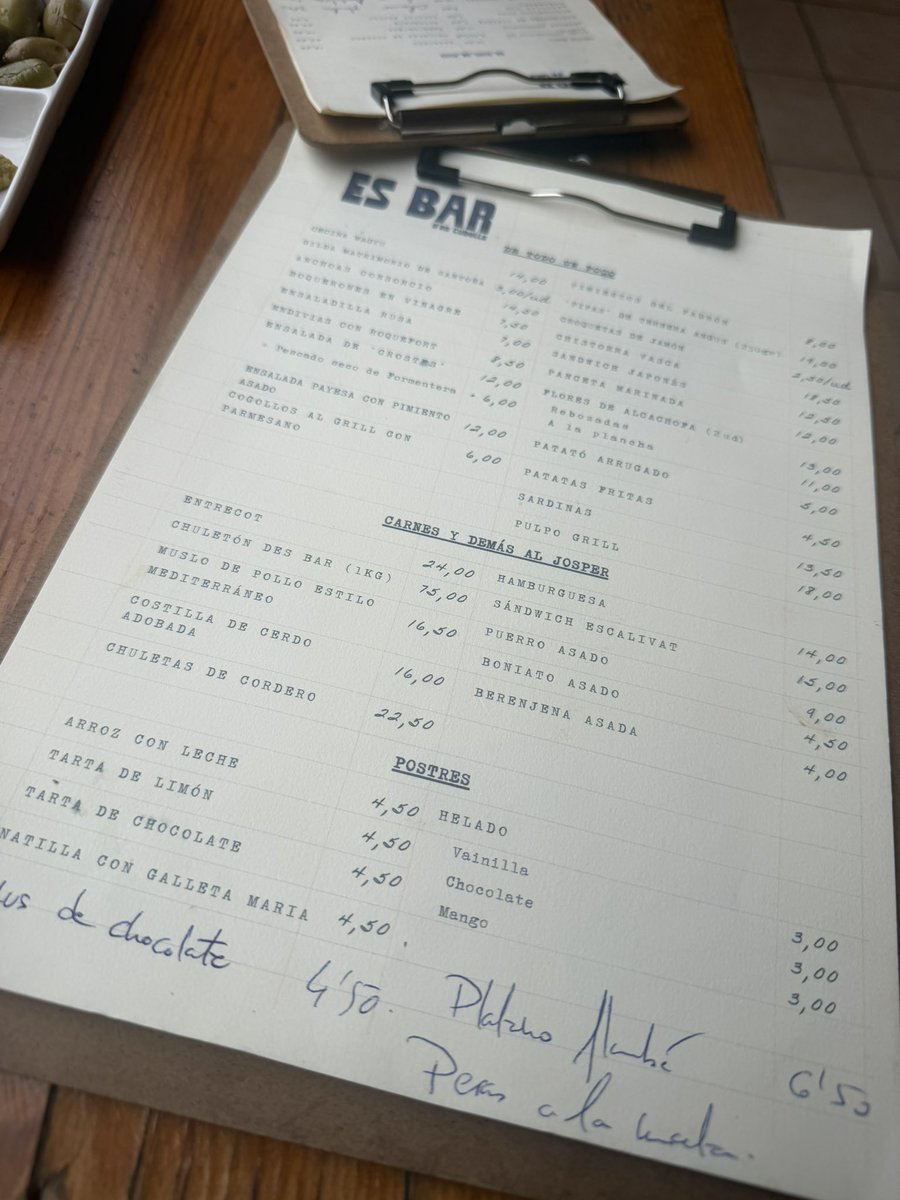 ES BAR
DE TODO UN POCO
CECINA WAGYU
GILDA MATRIMONIO DE SANTOÑA 3,00/ud
ANCHOAS CONSORCIO
BOQUERONES EN VINAGRE
ENSALADILLA RUSA
ENDIVIAS CON ROQUEFORT 8,50
ENSALADA DE "CROSTES" 12,00
+ Pescado seco de Formentera + 6,00
ENSALADA PAYESA CON PIMIENTO
ASADO 12,00
COGOLLOS AL GRILL CON
PARMESANO 6,00
PIMIENTOS DEL PADRÓN 8,00
CROQUETAS DE JAMÓN 2,50/ud
CHISTORRA VASCA
SÁNDWICH JAPONÉS 12,50
PANCETA MARINADA 12,00
FLORES DE ALCACHOFA (2ud)
Rebozadas 13,00
A la plancha 11,00
PATATÓ ARRUGADO 5,00
PATATAS FRITAS 4,50
SARDINAS 13,50
PULPO GRILL 18,00
CARNES Y DEMÁS AL JOSPER
ENTRECOT 24,00
CHULETÓN DES BAR (1KG) 75,00
MUSLO DE POLLO ESTILO
MEDITERRÁNEO 16,50
COSTILLA DE CERDO
ADOBADA 16,00
CHULETAS DE CORDERO 22,50
HAMBURGUESA 14,00
SÁNDWICH ESCALIVAT 15,00
PUERRO ASADO 9,00
BONIATO ASADO 4,50
BERENJENA ASADA 4,00
POSTRES
ARROZ CON LECHE 4,50
TARTA DE LIMÓN 4,50
TARTA DE CHOCOLATE 4,50
NATILLA CON GALLETA MARIA 4,50
de chocolate 4'50.
HELADO
Vainilla 3,00
Chocolate 3,00
Mango 3,00
Platano flambé 6'50
Peras a la